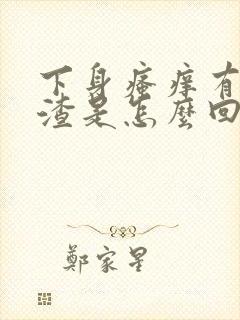 下身瘙痒有
渣是怎麼回
鄭家星